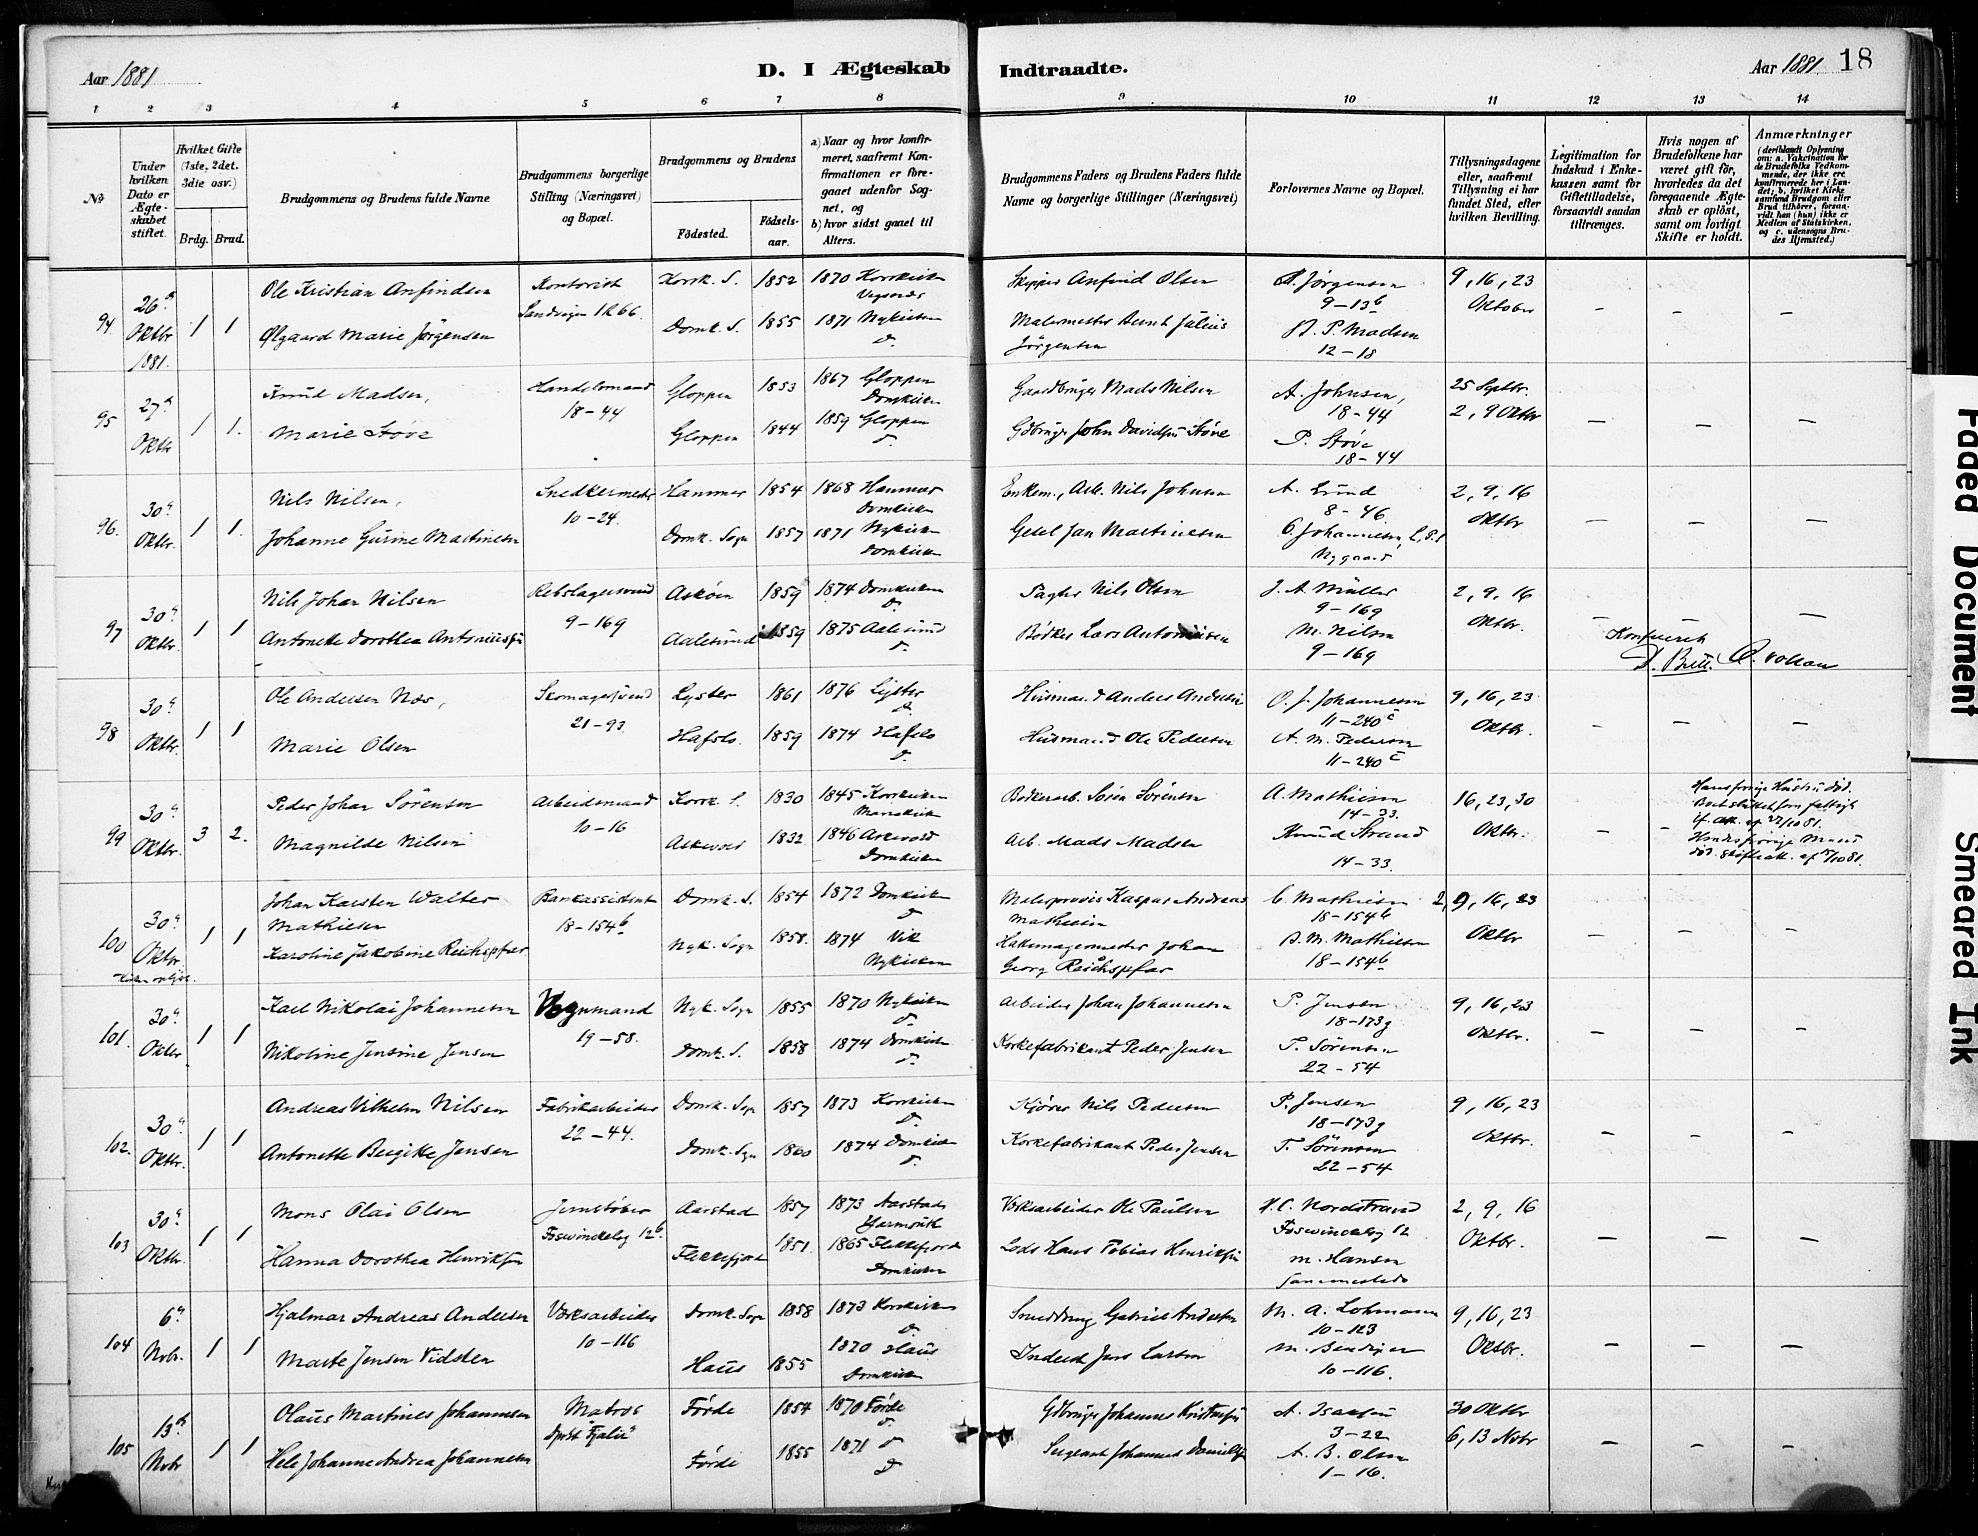 Aar 1881
D. I Ægteskab Indtraadte.
Aar 1881. 18
1 2 3 4 5 6 7 8 9 10 11 12 13 14
No
Under hvilken Dato er Ægteskabet stiftet.
Hvilket Gifte (1ste, 2det, 3die osv.)
Brdg. Brud.
Brudgommens og Brudens fulde Navne
Brudgommens borgerlige Stilling (Næringsvei) og Bopæl.
Brudgommens og Brudens
Fødested.
Fødselsaar.
a) Naar og hvor konfirmeret, saafremt Konfirmationen er foregaaet udenfor Sognet, og
b) hvor sidst gaaet til Alters.
Brudgommens Faders og Brudens Faders fulde Navne og borgerlige Stillinger (Næringsvei)
Forlovernes Navne og Bopæl.
Tillysningsdagene eller, saafremt Tillysning ei har fundet Sted, efter hvilken Bevilling.
Legitimation for Indskud i Enkekassen samt for Giftetilladelse, forsaavidt saadan tiltrænges.
Hvis nogen af Brudefolkene har været gift før, hvorledes da det foregaaende Ægteskab er opløst, samt om lovligt Skifte er holdt.
Anmærkninger
94 26 Oktbr 1881. 1 1
Ole Kristian Anfindsen Kontorist Korsk. S. 1852 1870 Korskirken Skipper Anfind Olsen Jørgensen 9, 16, 23
Sandvigen 1 R 66. 9-13b Oktober
Ølgaard Marie Jørgensen Domk. S. 1855 1871 Nykirken Malermester Bernt Julius Jørgensen P. Madsen
12-18
95 27 Oktbr 1 1.
Knud Madsen, Handelsmand Gloppen 1853 1867 Gloppen Domkirken Gaardbruger Mads Nilsen A. Johnsen, 25 Septbr.
18-44 18-44 2, 9 Oktbr
Marie Støve Gloppen 1844 1859 Gloppen Gdbruger John Davidsen Støve P. Støve
18-44
96. 30 Oktbr. 1 1.
Nils Nilsen, Snedkermester Hammer 1854 1868 Hammer Domkirken Enkem., Arb. Nils Johnsen A. Lund 2, 9, 16
10-24. 8-46 Oktbr
Johanne Gurine Martinesen Domk. Sogn 1857 1871 Nykirken Domkirken Gesel Jan Martinesen Johannesen
Nygaard
97 30 Oktbr. 1 1
Nils Johan Nilsen Rebslagersvend Askøen 1859 1874 Domkirken Nils Olsen J. A. Müller 2, 9, 16
9-169 9-169 Oktbr.
Antonette Dorothea Antoniussen Aalesund 1859 1875 Aalesund Bødker Lars Antoniussen M. Nilsen
9-169
Konfererit
98 30 Oktbr. 1 1
Ole Andersen Nær, Skomagersvend Lyster 1861 1876 Lyster Husmand Anders Andersen O. J. Johannesen 9, 16, 23
21-93. 11-240c Oktbr.
Marie Olsen Hafslo. 1859 1874 Hafslo Husmand Ole Pedersen A. M. Pedersen
11-240c
99 30 Oktbr. 3 2.
Peder Johan Sørensen Arbeidsmand Korsk. S. 1830 1845 Korskirken Mariekirk Bødkerarb. Søren Sørensen A. Mathiesen 16, 23, 30
10-16 14-33. Oktbr.
Magnilde Nilsen Askevold 1832 1846 Askevold Domkirken Arb. Mads Madsen Knud Strand
14-33.
Hans forrige Hustru død.
Hendes forrige Mand død.
100 30 Oktbr. 1 1
Johan Karsten Walter Mathiesen Bankassistent Domk. S. 1854 1872 Domkirken Kaspar Andreas Mathiesen C. Mathiesen 2, 9, 16, 23
18-154b 18-154b Oktbr
Karoline Jakobine Reichspfar Nyk. Sogn 1858. 1874 Vik Nykirken Johan Georg Reichspfar B. M. Mathiesen
18-154b
101. 30 Oktbr. 1 1
Karl Nikolai Johannesen Vognmand Nyk. Sogn 1855 1870 Nykirken Arbeider Johan Johannesen P. Jensen 9, 16, 23
19-58. 18-173g Oktbr.
Nikoline Jensine Jensen Domk. S. 1858 1874 Domkirken Korkefabrikant Peder Jensen T. Sørensen
22-54
102. 30 Oktbr. 1 1
Andreas Vilhelm Nilsen Fabrikarbeider Domk. Sogn 1857 1873 Korskirken Kjører Nils Pedersen P. Jensen 9, 16, 23
22-44. 18-173g Oktbr.
Antonette Bergitte Jensen Domk. Sgn 1860 1874 Domkirken Korkefabrikant Peder Jensen T. Sørensen
22-54
103 30 Oktbr. 1 1
Mons Olai Olsen Jernstøber Aarstad 1857 1873 Aarstad Værksarbeider Ole Paulsen H. C. Nordstrand 2, 9, 16
Fosswinckelsg 12b Yarmouth Fosswinckelsg 12 Oktbr.
Hanna Dorothea Henriksen Flekkefjord 1851. 1865 Flekkefjord Domkirken Lods Hans Tobias Henriksen M. Hansen
sammesteds
104 6 Nvbr. 1 1
Hjalmar Andreas Andersen Værksarbeider Domk. Sogn 1858 1873 Korskirken Smeddreng Gabriel Andersen M. A. Lohmann 9, 16, 23
10-116 10-123 Oktbr.
Marte Jensen Vidsten Haus 1855 1870 Haus Domkirken Inderst Jens Larsen
10-116.
105 13 Nvbr 1 1
Olaus Martines Johannesen Matros Førde 1854 1870 Førde Gdbruger Johannes Kristensen A. Isaksen 30 Oktbr
3-22 6, 13 Nvbr
Hele Johanne Andrea Johannesen Førde 1855 1871 Sergeant Johannes Danielsen A. B. Olsen
1-16.
Faded Document
Smeared Ink